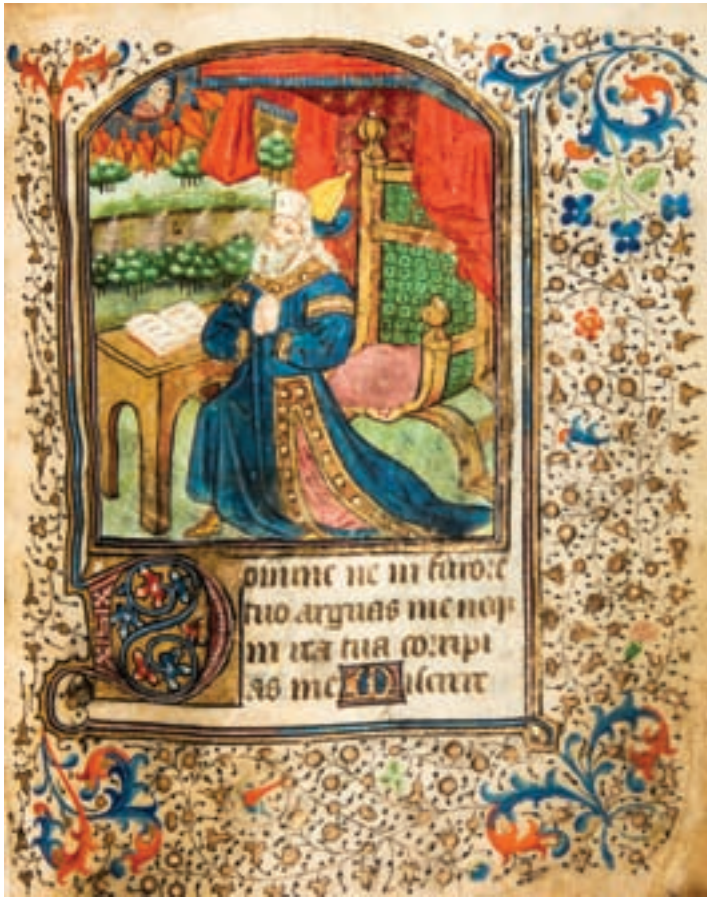 Domine ne in furore
tuo arguas me neqȝ
in ira tua corripi
as me Miserere